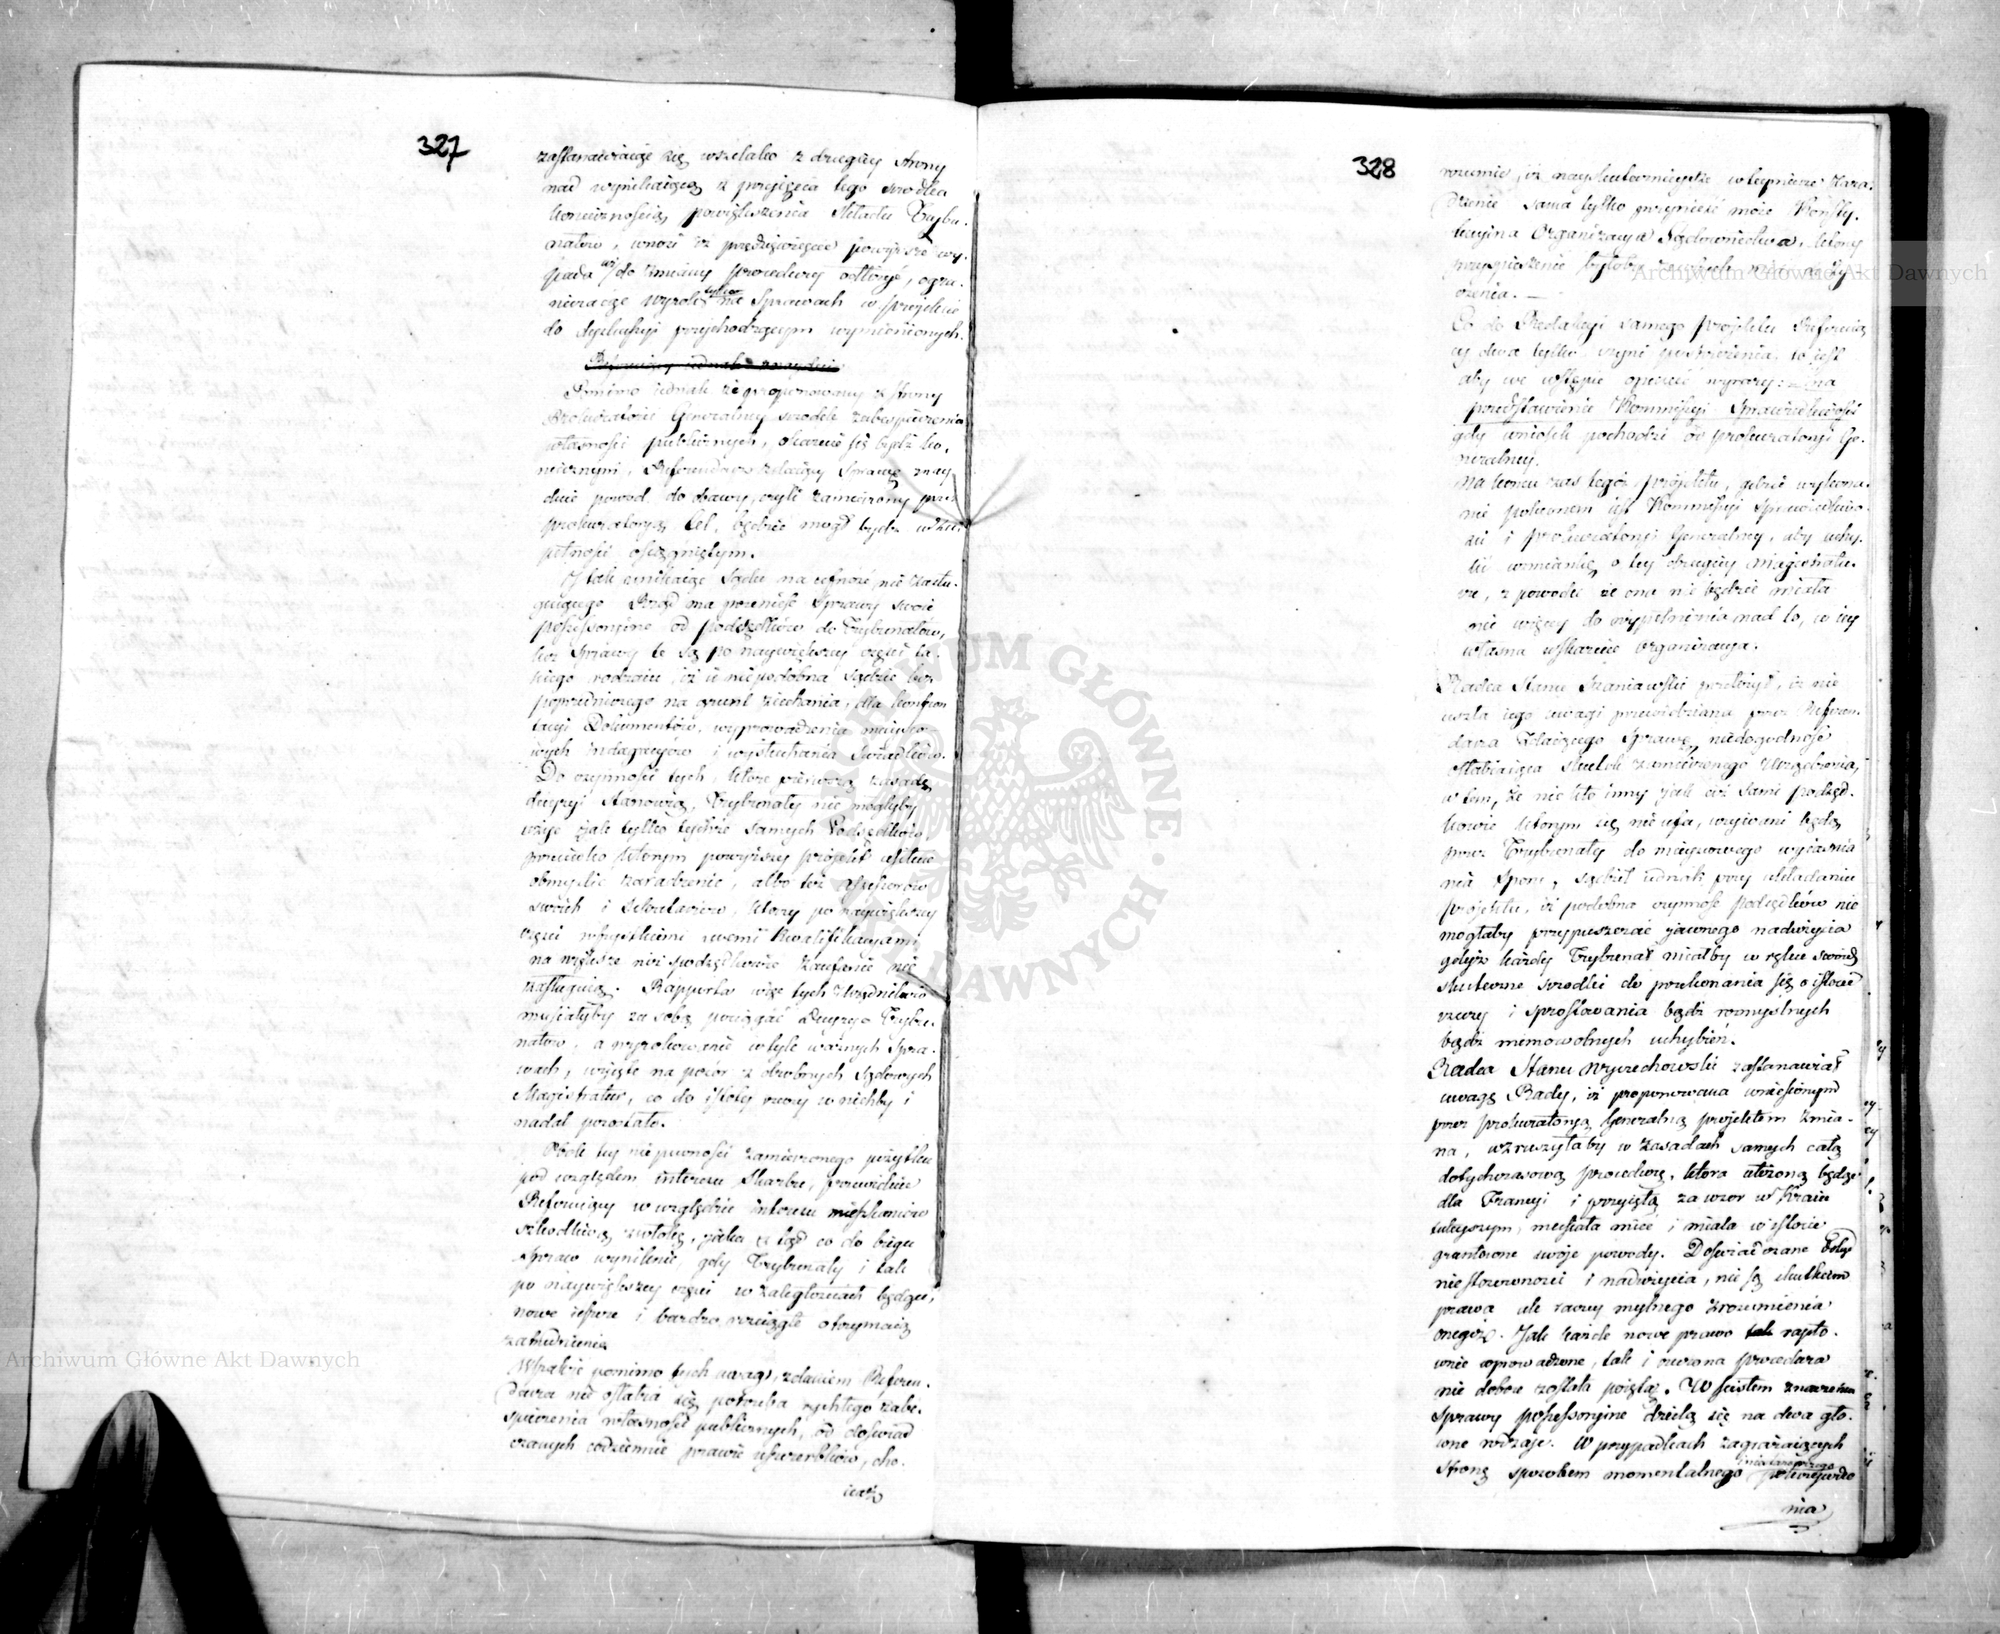 327
zastanawiaiąc się wszelako z drugiey strony
nad wynikaiącą z przyięcia tego srodka
koniecznością powiększenia Składu Trybu-
nałow, wnosi iż przedsięwzięcie powyższe wy-
pada do zmiany procedury odłożyć, ogra-
niczaiąc wyrok tylko na Sprawach w proiekcie
do dyskussyi przychodzącym wymienionych.
Pomimo iednak że proponowany z strony
Prokuratorii Generalney srodek zabezpieczenia
własności publicznych, okazuie się bydź ko-
niecznym, Referendarz zdaiący Sprawę znay-
duie powod do obawy, czyli zamierzony przez
prokuratoryą cel, będzie mogł bydź w zu-
pełności osiągniętym.
I tak unikaiąc Sądu na ufność nie zasłu-
guiącego Rząd ma przenieść Sprawy swoie
possessoryine od podsędków do Trybunałow,
lecz Sprawy te są po największey części ta-
kiego rodzaiu, iż ie niepodobna sądzić bez
poprzedniczego na grunt ziechania, dla konfron-
tacyi Dokumentów, wyprowadzenia mieysco-
wych indagacyów i wysłuchania Swiadków.
Do czynności tych, które pierwszą zasadę
decyzyi stanowią, Trybunały nie mogłyby
użyć iak tylko tychże samych Podsędków,
przeciwko ktorym powyższy proiekt usiłuie
obmyślić zaradzenie, albo też Assessorów
swoich i Sekretarzow, ktorzy po największey
części wszystkiemi swemi kwalifikacyami
na większe niż podsędkowie zaufanie nie
zasługuią. Rapporta więc tych Urzędników
musiałyby za sobą pociągać Decyzye Trybu-
nałow, a wyrokowanie w tyle ważnych Spra-
wach, wyięte na pozór z drobnych Sądowych
Magistratur, co do istoty rzeczy w nichby i
nadal pozostało.
Obok tey niepewności zamierzonego pożytku
pod względem interesu Skarbu, przewiduie
Referuiący w względzie interesu mieszkańców
szkodliwą zwłokę, iaka z tąd co do biegu
Spraw wyniknie, gdy Trybunały i tak
po największey części w zaległościach będące,
nowe ieszcze i bardzo rozciągłe otrzymaią
zatrudnienia
Wszakże pomimo tych uwag, zdaniem Referen-
darza nie osłabia się potrzeba rychłego zabe-
spieczenia własności publicznych, od doswiad
czanych codziennie prawie uszczerbków, cho-
ciaż
328
rozumie, iż nayskutecznieysze w tey mierze zara-
dzenie sama tylko przynieść może Konsty-
tucyina Organizacya Sądownictwa, ktorey
przyspieszenie byłoby
czenia. —
Co do Redakcyi samego proiektu Referuią
cy dwa tylko czyni postrzeżenia, to iest
aby we wstępie opuścić wyrazy: — na
przedstawienie Kommissyi Sprawiedliwości
gdy wniosek pochodzi od prokuratoryi Ge-
neralney.
Na końcu zas tegoż proiektu, gdzie wykona-
nie polecanem iest Kommissyi Sprawiedliwo-
sci i prokuratoryi Generalney, aby uchy-
lić wzmiankę o tey drugiey Magistratu-
rze, z powodu że ona nie będzie miała
nic więcey do wypełnienia nad to, co iey
własna wskazuie Organizacya.
Radca Stanu Szaniawski przełożył, iż nie
uszła iego uwagi przewidziana przez Referen-
darza Zdaiącego Sprawę niedogodność
osłabiaiąca skutek zamierzonego Urządzenia,
w tem, że nie kto inny iak ciż sami podsęd-
kowie ktorym się nie ufa, wzywani będą
przez Trybunały do mieyscowego wyiaśnie
nia sporu, sądził iednak przy układaniu
proiektu, iż podobna czynność podsędków nie
mogłaby przypuszczać iawnego nadużycia
gdyż każdy Trybunał miałby w ręku swoich
skuteczne srodki do przekonania się o istocie
rzeczy i sprostowania bądź rozmyślnych
bądź mimowolnych uchybień.
Radca Stanu Wyczechowski zastanawiał
uwagę Rady, iż proponowana wniesionym
przez prokuratoryą Generalną proiektem zmia-
na, wzruszyłaby w zasadach samych całą
dotychczasową procedurę, ktora ułożoną będąc
dla Francyi i przyiętą za wzor w Kraiu
tuteyszym, musiała mieć i miała w istocie
gruntowne swoie powody. Doswiadczane
niestosowności i nadużycia, nie są skutkiem
prawa ale raczey mylnego zrozumienia
onegoż. Jak każde nowe prawo rapto-
wnie wprowadzone, tak i owczona procedura
nie dobrze została poiętą. W ścisłem znaczeniu
Sprawy possessoryine dzielą się na dwa głó-
wne rodzaie. W przypadkach zagrażaiących
stroną sposobem momentalnego
nia